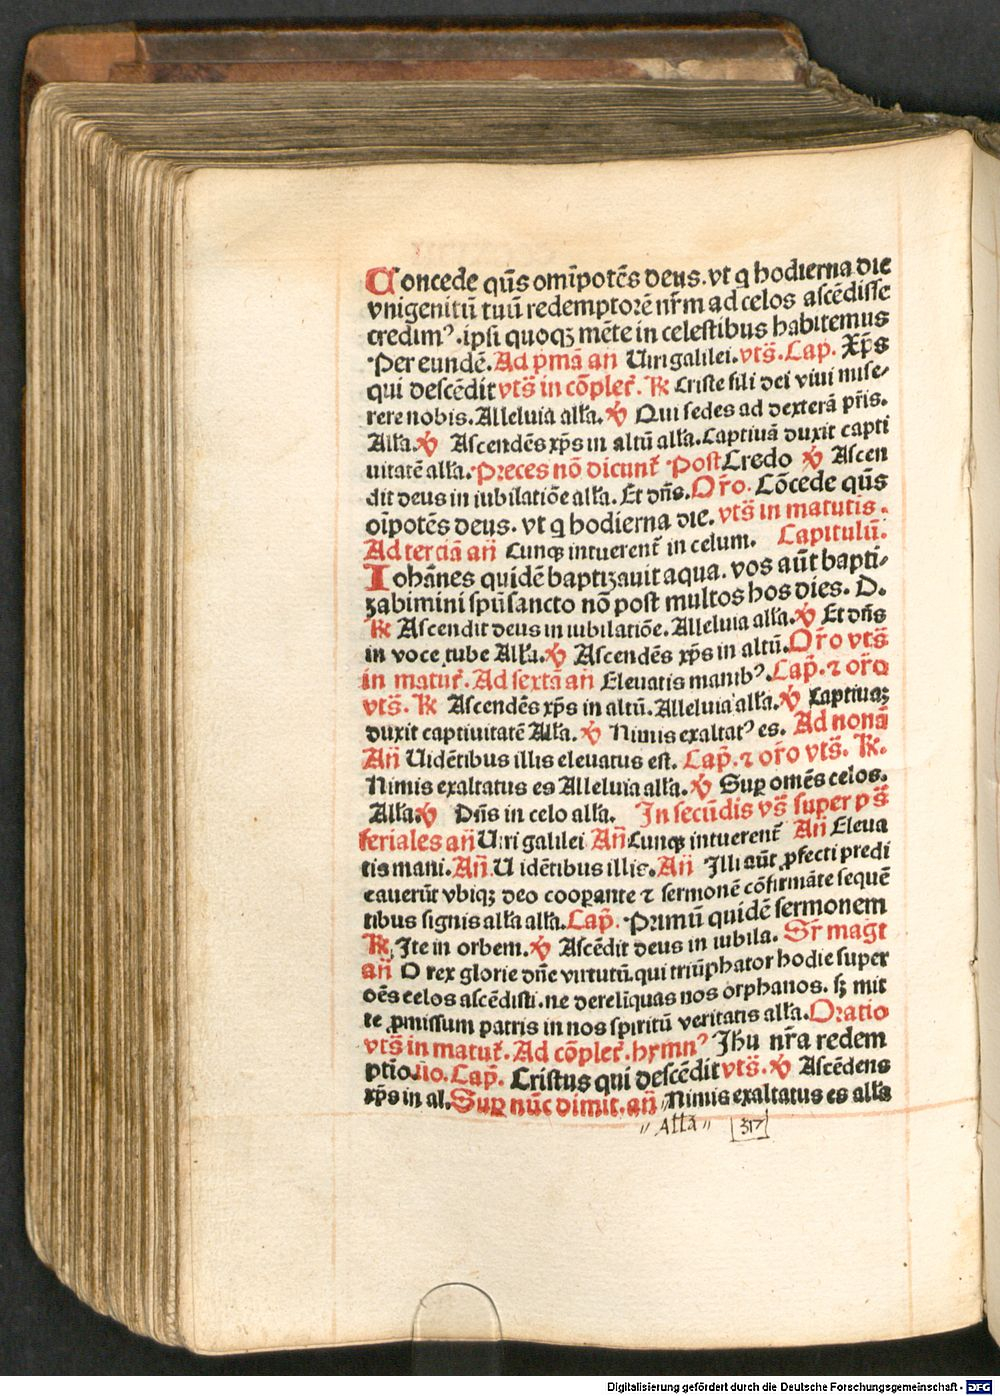 Concede q̄s om̄ipotēs deus. vt q hodierna die
vnigenitū tuū redemptorē nr̄m ad celos ascēdisse
credimꝰ. ipsi quoqꝫ mēte in celestibus habitemus
Per eundē. Ad pͥmā an̄ Uiri galilei. vts̄. Cap̄. Xp̄s
qui descēdit vts̄ in cōplet̄. ℟ Criste fili dei viui mise⸗
rere nobis. Alleluia all̄a. ℣ Qui sedes ad dexterā pr̄is.
All̄a. ℣ Ascendēs xp̄s in altū all̄a. Captiuā duxit capti
uitatē all̄a. Preces nō dicunt̄ Post Credo ℣ Ascen
dit deus in iubilatiōe all̄a. Et dn̄s. Or̄o. Cōcede q̄s
oīpotēs deus. vt q hodierna die. vts̄ in matutis.
Ad terciā an̄ Cunqꝫ intuerent̄ in celum. Capitulū.
Iohānes quidē baptizauit aqua. vos aūt bapti⸗
zabimini spū sancto nō post multos hos dies. D.
℟ Ascendit deus in iubilatiōe. Alleluia all̄a. ℣ Et dn̄s
in voce tube All̄a. ℣ Ascendēs xp̄s in altū. Or̄o vts̄
in matut̄. Ad sextā an̄ Eleuatis manibꝰ. Cap̄. ⁊ or̄o
vts̄. ℟ Ascendēs xp̄s in altū. Alleluia all̄a. ℣ Captiuaꝫ
duxit captiuitatē All̄a. ℣ Nimis exaltatꝰ es. Ad nonā
An̄ Uidētibus illis eleuatus est. Cap̄. ⁊ or̄o vts̄. ℟.
Nimis exaltatus es Alleluia all̄a. ℣ Suꝑ omēs celos.
All̄a ℣ Dn̄s in celo all̄a. In secūdis vs̄ super ps̄
feriales an̄ Uiri galilei An̄ Cunqꝫ intuerent̄ An̄ Eleua
tis mani. An̄ Uidētibus illis. An̄ Illi aūt ꝓfecti predi
cauerūt vbiqꝫ deo cooꝑante ⁊ sermonē cōfirmāte sequē
tibus signis all̄a all̄a. Cap̄. Primū quidē sermonem
℟ Ite in orbem. ℣ Ascēdit deus in iubila. Sr̄ maḡt
an̄ O rex glorie dn̄e virtutū. qui triūphator hodie super
oēs celos ascēdisti. ne derelīquas nos orphanos. sꝫ mit
te ꝓmissum patris in nos spiritū veritatis all̄a. Oratio
vts̄ in matut̄. Ad cōplet̄. hymnꝰ Jhu nr̄a redem
ptio. no. Cap̄. Cristus qui descēdit vts̄. ℣ Ascēdens
xp̄s in al. Suꝑ nūc dimit. an̄ Nimis exaltatus es all̄a
" All̄a " 317
Digitalisierung gefördert durch die Deutsche Forschungsgemeinschaft - DFG